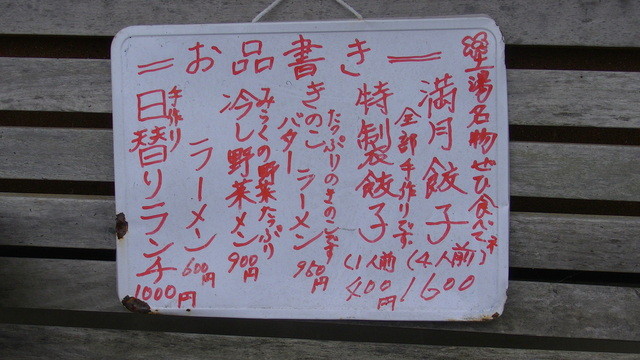 =お品書き=
湯名物ぜひ食べてネ
満月餃子(4人前)1600
全部手作りです。
特製餃子(1人前400円
たっぷりのきのこです
きのこ ラーメン 950円
バター
野菜たっぷり
冷し野菜メン 900円
ラーメン 600円
手作り
日替りランチ 1000円